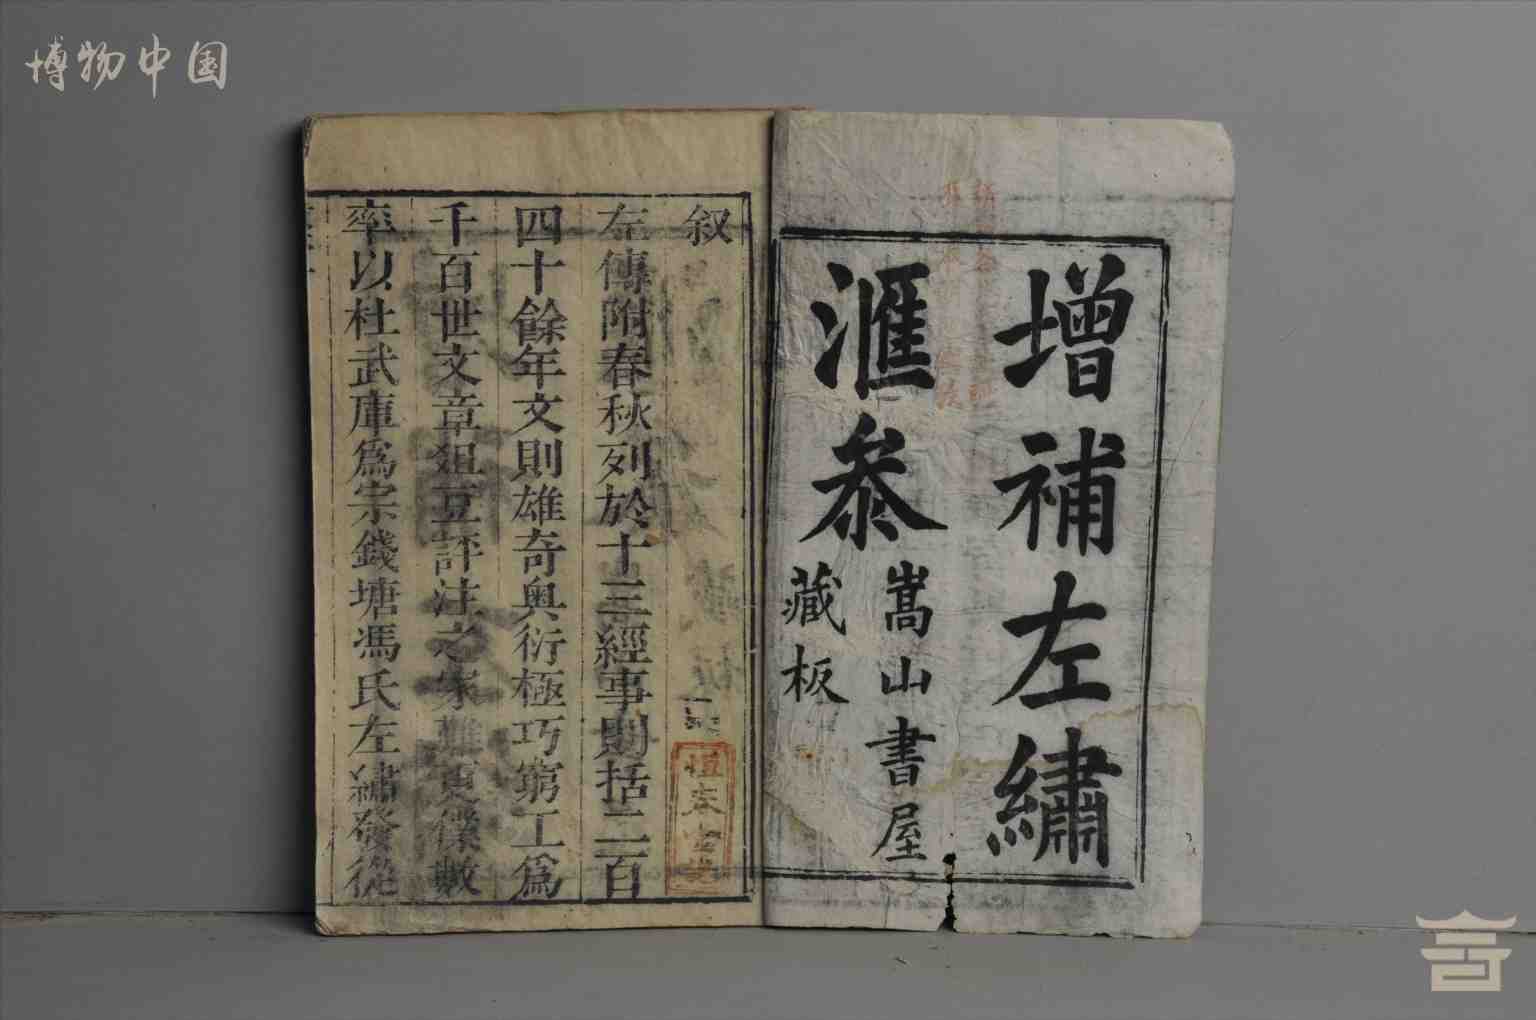 博物中国
增補左繡
滙叅
嵩山書屋
藏板
叙
左傳附春秋列於十三經事則括二百
四十餘年文則雄奇奥衍極巧窮工爲
千百世文章俎豆評注之家難更僕數
率以杜武庫爲宗錢塘馮氏左繡發從